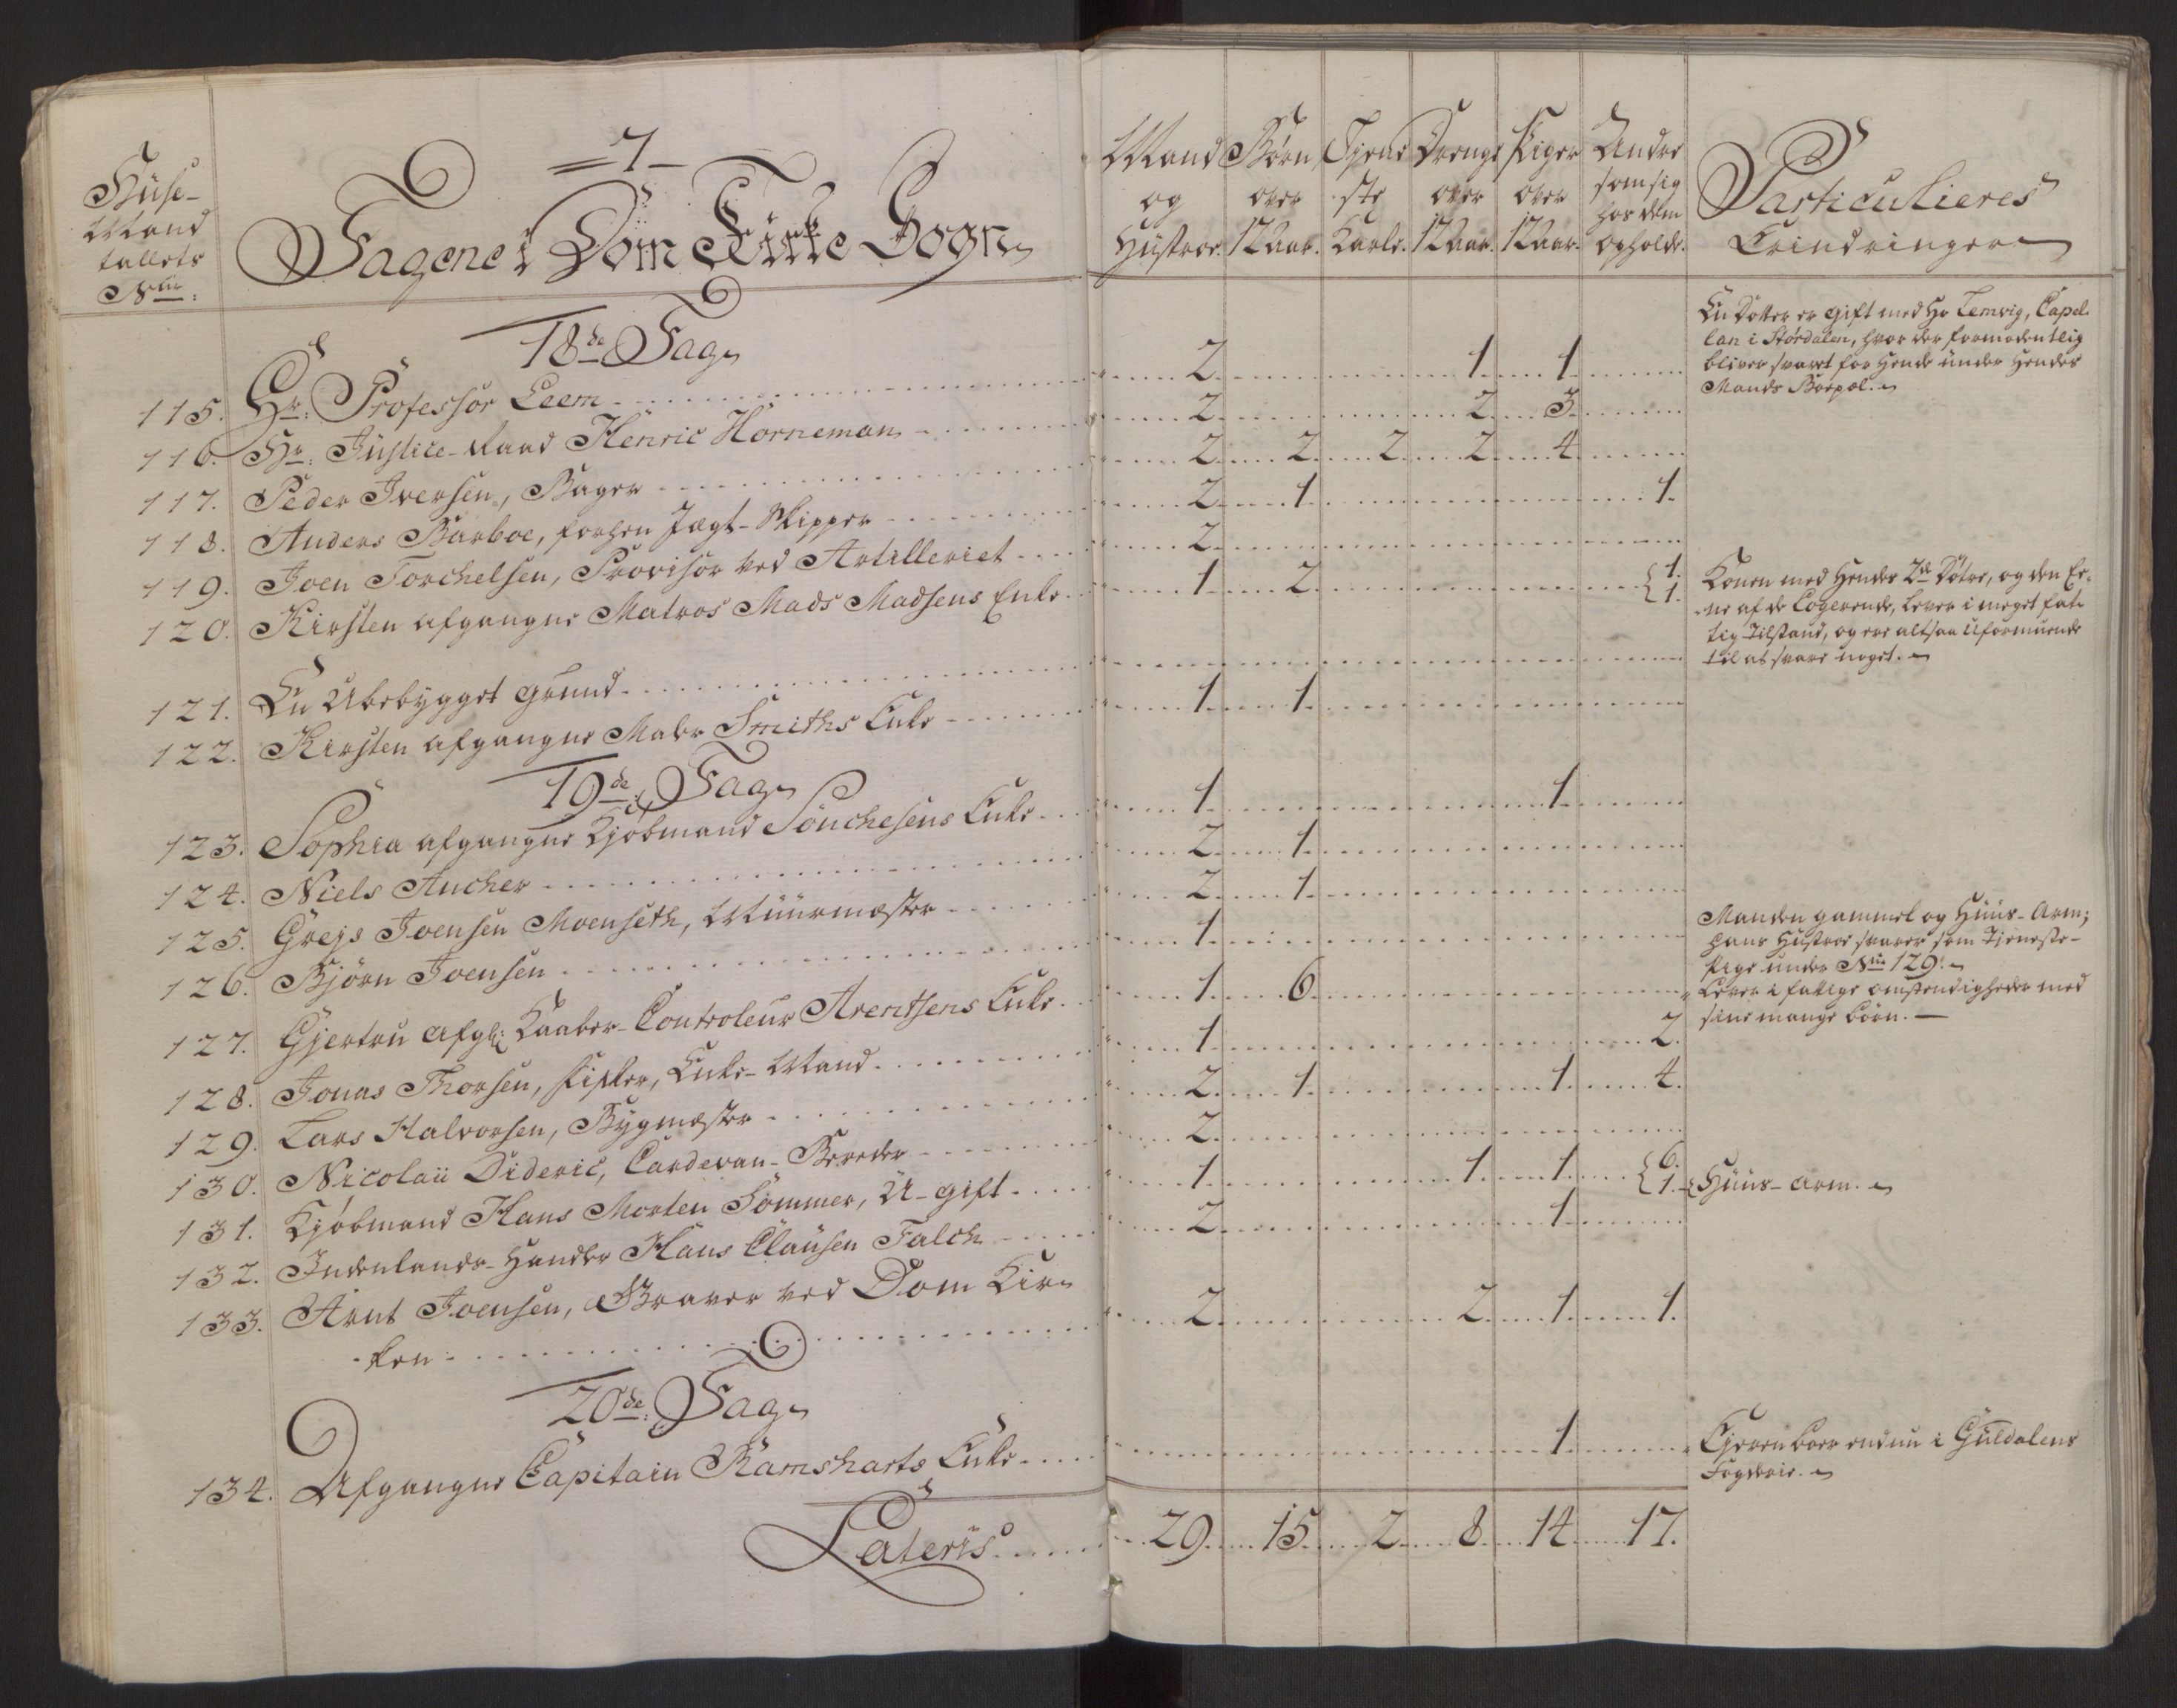 Huse-
Mand
tallets
No:
7
Tagene i Dom Kirke Sogn
Mand og Hustroe.
Børn over 12 Aar.
Tjene ste Karle.
Drenge over 12 Aar.
Piger over 12 Aar.
Andre som sig hos dem opholde.
Particulieres Erindringer
18de Tag
115. Hr: Professor Leem 2 1 1
En Dotter er gift med Hr Lemvig, Capel-
lan i Størdalen, hvor der formodentlig
bliver svaret for Hende under Hendes
Mands Boepæl.
116. Hr: Justice-Raad Henric Horneman 2 2 3
117. Peder Iversen, Bager 2 2 2 2 4
118. Anders Barboe, forhen Jægt-Skipper 2 1 1.
119. Joen Torchelsen, Provisor ved Artilleriet 2
120. Kirsten afgangne Matros Mads Madsens Enke 1 2 { 1. 1.
Konen med Hendes 2de Døtre, og den Ee-
ne af de Logerende, lever i meget fat-
tig Tilstand, og ere altsaa Uformuende
til at svare noget.
121. En Ubebygget grund
122. Kirsten afgangne Maler Smiths Enke 1 1
19de Tag
123. Sophia afgangne Kjøbmand Sönchesens Enke 1 1
124. Niels Ancher 2 1
125. Grejs Joensen Moenseth, Muurmæster 2 1
126. Bjørn Joensen 1
Manden gammel og Huus-Arm;
hans Hustroe svarer som Tjeneste-
Pige under No 129.
127. Gjertru afg: Kaaber-Controleur Arentsens Enke 1 6
Lever i fatige omstendigheder med
sine mange Børn.
128. Jonas Thorsen, Fisker, Enke-Mand 1 2.
129. Lars Halvorsen, Bygmester 2 1 1 4.
130. Nicolaii Dideric, Cardevan-Bereder 2
131. Kjøbmand Hans Morten Sommer, U-gift 1 1 1 { 6. 1. Huus-arm.
132. Indenlands-Handler Hans Clausen Falch 2 1
133. Arnt Joensen, Graver ved Dom Kir-
-ken 2 2 1 1.
20de Tag
134. Afgangne Capitain Ramsharts Enke 1
Ejeren boer endnu i Guldalens
Fogderie.
Lateris 29 15 2 8 14 17.